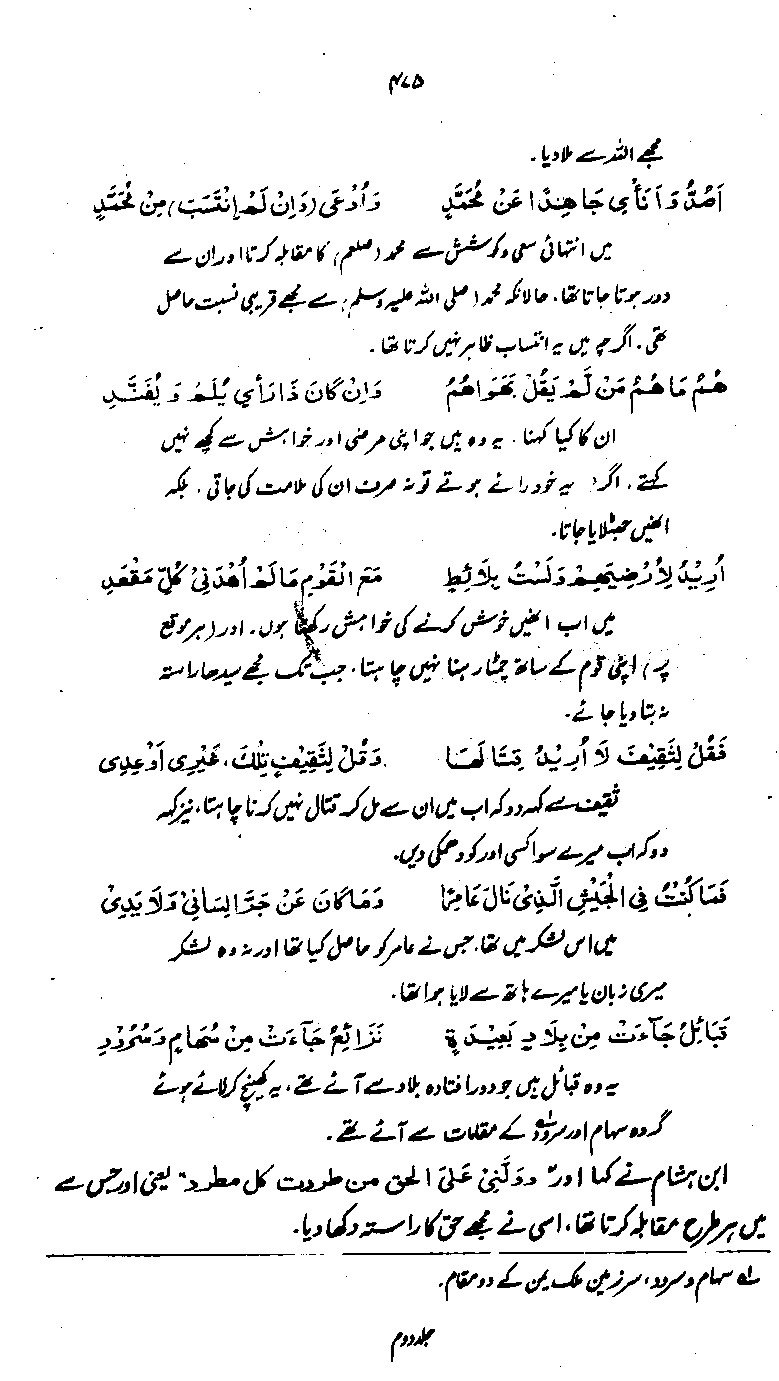 ۴۷۵
مجھے اللہ سے ملا دیا۔
اَصُدُّ وَ اَنْأٰی جَاهِدًا عَنْ مُحَمَّدٍ وَ اُدْعٰی (وَاِنْ لَمْ اِنْتَسَبْ) مِنْ مُحَمَّدٍ
میں انتہائی سعی و کوشش سے محمد (صلعم) کا مقابلہ کرتا اور ان سے
دور ہوتا جاتا تھا، حالانکہ محمد (صلی اللہ علیہ وسلم) سے مجھے قریبی نسبت حاصل
تھی۔ اگرچہ میں یہ انتساب ظاہر نہیں کرتا تھا۔
هُمُ مَا هُمُ مَنْ لَمْ یَقُلْ بِهَوَاهُمُ وَاِنْ کَانَ ذَا رَأیٍ یُلَمْ وَ یُفَنَّدِ
ان کا کیا کہنا، یہ وہ ہیں جو اپنی مرضی اور خواہش سے کچھ نہیں
کہتے، اگر یہ خود رائے ہوتے تو نہ صرف ان کی ملامت کی جاتی، بلکہ
انھیں جھٹلایا جاتا۔
اُرِیْدُ لِاُرْضِیَهِمْ وَلَسْتُ بِلَائِطٍ مَعَ الْقَوْمِ مَا لَمْ اُهْدَ فِیْ کُلِّ مَقْعَدِ
میں اب انھیں خوش کرنے کی خواہش رکھتا ہوں۔ اور (ہر موقع
پر) اپنی قوم کے ساتھ چمٹا رہنا نہیں چاہتا، جب تک مجھے سیدھا راستہ
نہ بتا دیا جائے۔
فَقُلْ لِثَقِیْفٍ لَا اُرِیْدُ قِتَالَهَا وَقُلْ لِثَقِیْفٍ تِلْكَ، غَیْرِی اَوْعِدِی
ثقیف سے کہہ دو کہ اب میں ان سے مل کر قتال نہیں کرنا چاہتا، نیز کہہ
دو کہ اب میرے سوا کسی اور کو دھمکی دیں۔
فَمَا کُنْتُ فِی الْجَیْشِ الَّذِیْ نَالَ عَامِرًا وَمَا کَانَ عَنْ جَرَّا لِسَانِیْ وَلَا یَدِیْ
میں اس لشکر میں تھا، جس نے عامر کو حاصل کیا تھا اور نہ وہ لشکر
میری زبان یا میرے ہاتھ سے لایا ہوا تھا۔
قَبَائِلُ جَآءَتْ مِنْ بِلَادٍ بَعِیْدَةٍ نَزَائِعُ جَآءَتْ مِنْ سُهَامٍ وَسُرْدُدِ
یہ وہ قبائل ہیں جو دور افتادہ بلاد سے آئے تھے، یہ کھینچ کر لائے ہوئے
گروہ سہام اور سردد کے مقامات سے آئے تھے۔
ابن ہشام نے کہا اور "ودلّنی علی الحق من طردت کل مطرد" یعنی اور جس سے
میں ہر طرح مقابلہ کرتا تھا، اسی نے مجھے حق کا راستہ دکھا دیا۔
لہ سہام و سردد، سرزمین ملک یمن کے دو مقام۔
جلد دوم